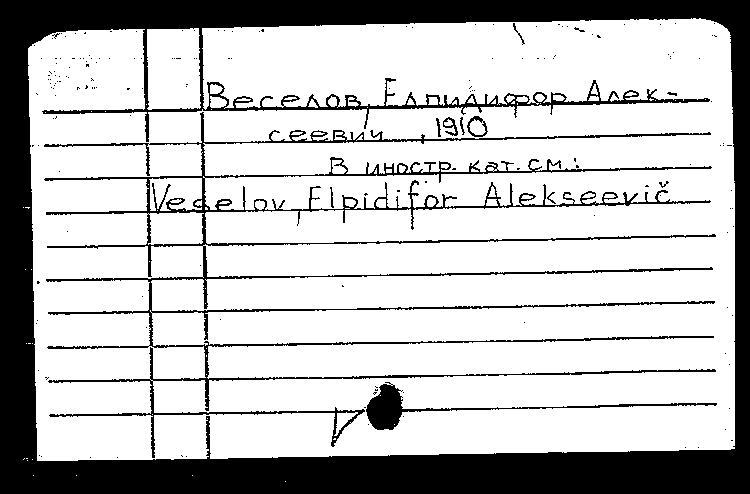 Веселов, Елпидифор Алек-
сеевич , 1910
В иностр. кат. см.:
Veselov, Elpidifor Alekseevič